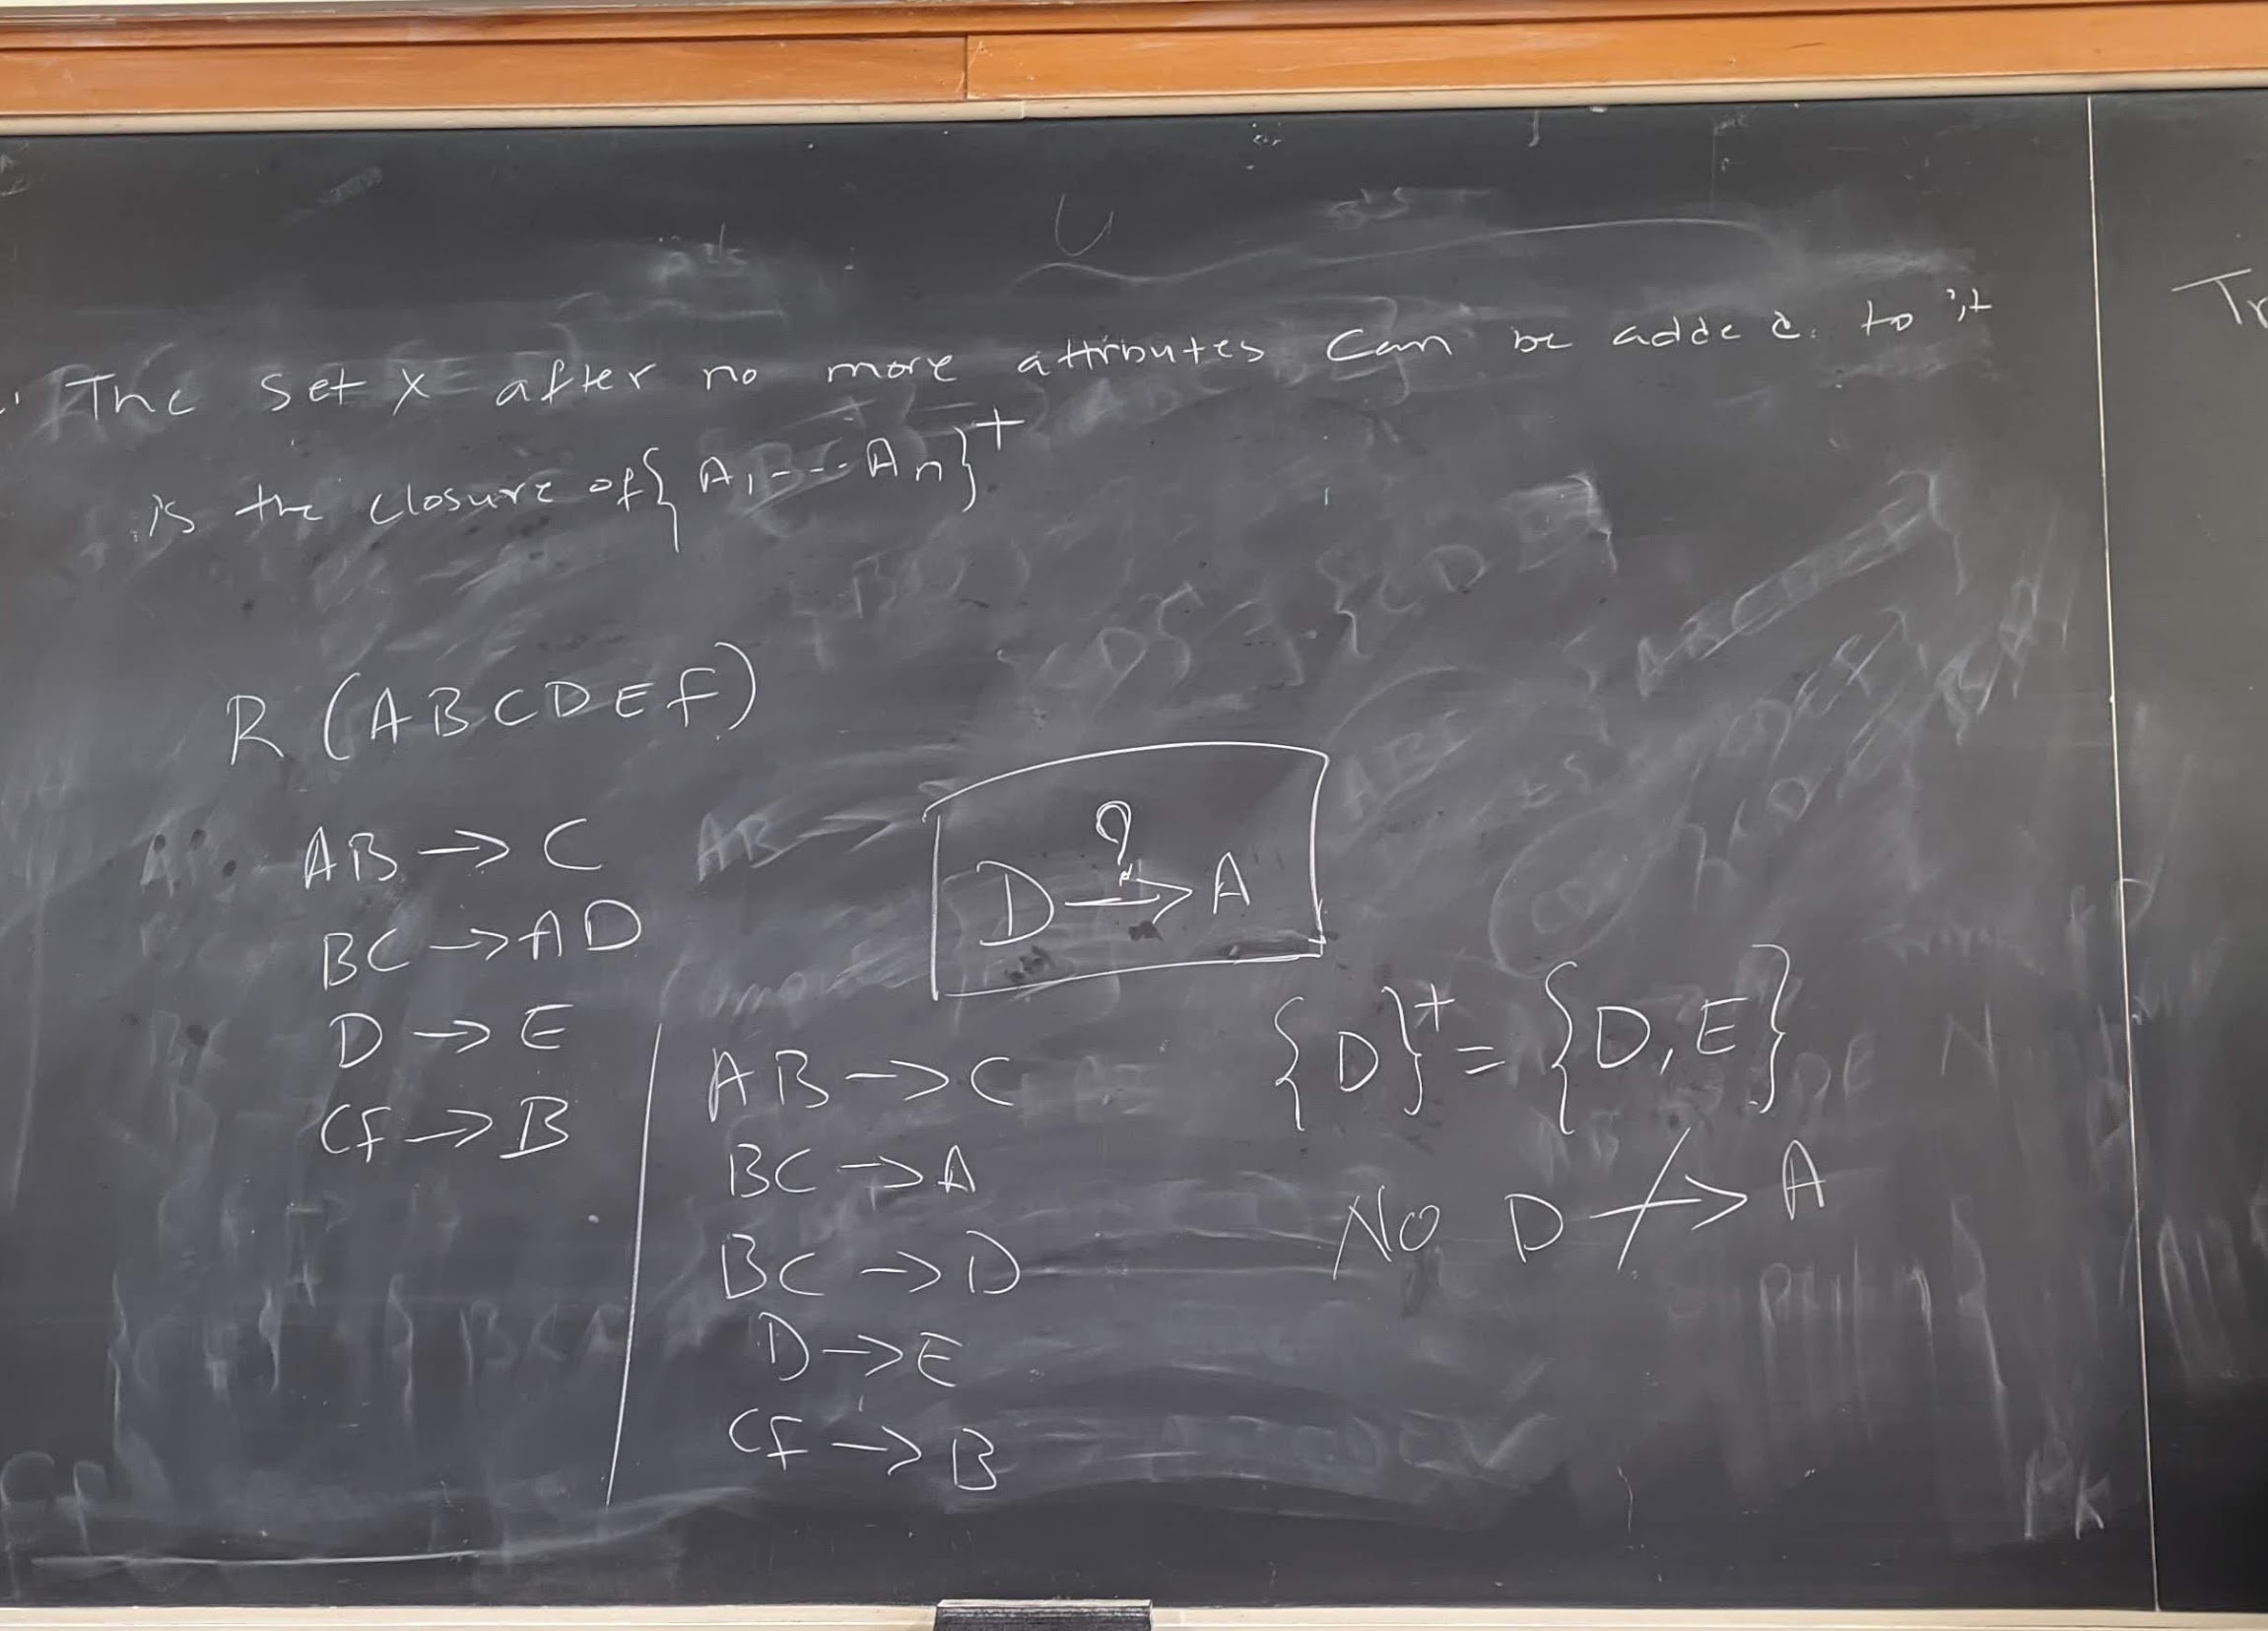 The Set X after no more attributes Can be added to it
is the closure of {A, --- An}+
R (ABCDEF)
AB → C
BC → AD
D → E
CF → B
?
D → A
AB → C
BC → A
BC → D
D → E
CF → B
{D}+ = {D, E}
No D ↛ A
Tr